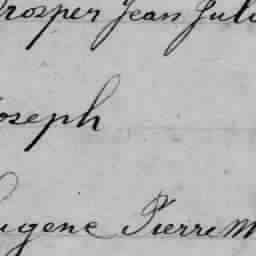 Prosper Jean Jule
Joseph
Eugene Pierre M